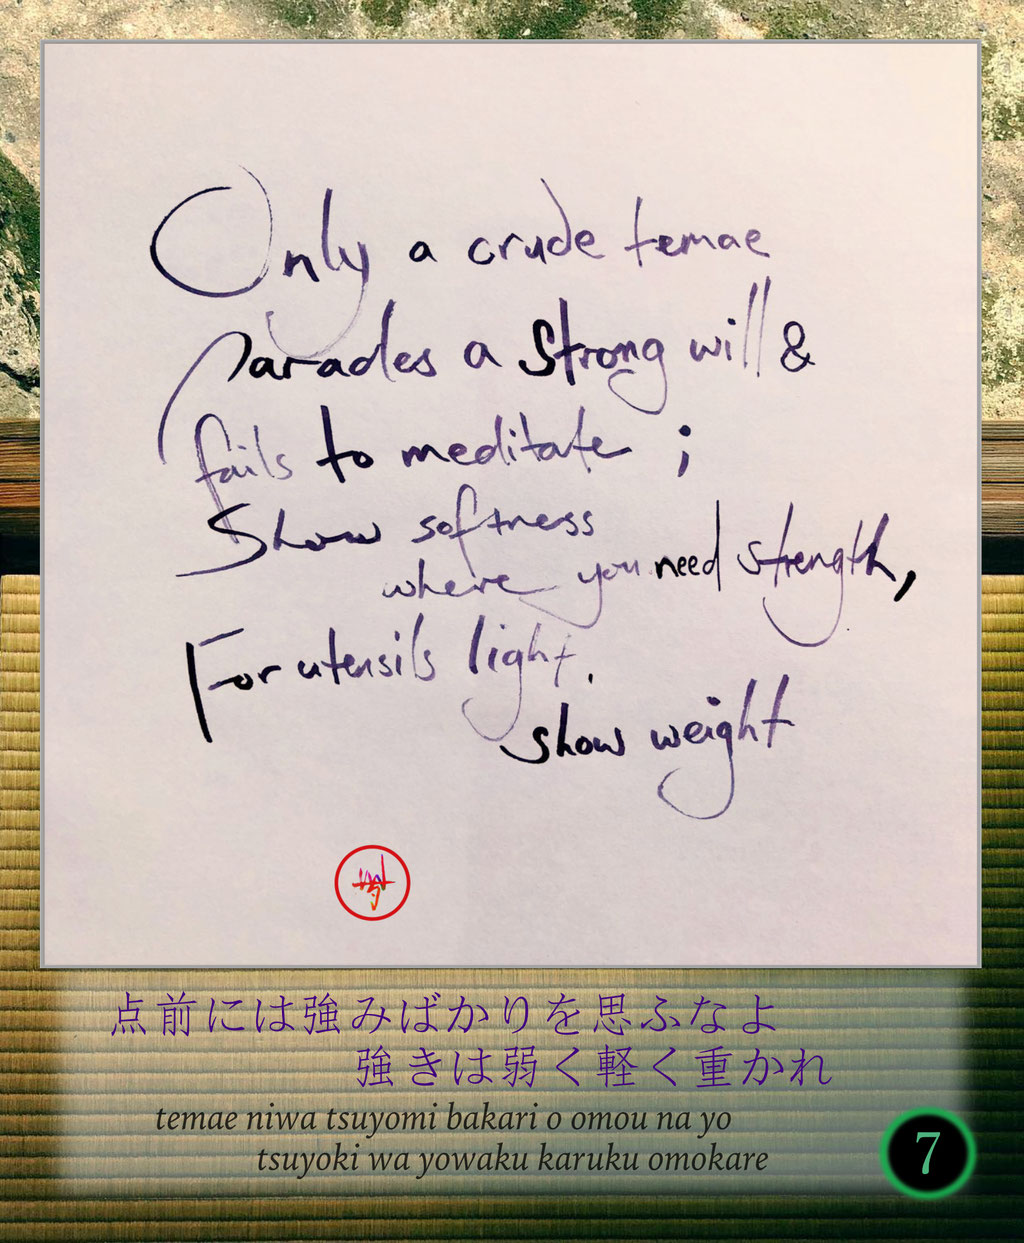 Only a crude temae
Parades a strong will &
fails to meditate ;
Show softness
where you need strength,
For utensils light.
show weight
点前には強みばかりを思ふなよ
強きは弱く軽く重かれ
temae niwa tsuyomi bakari o omou na yo
tsuyoki wa yowaku karuku omokare
7